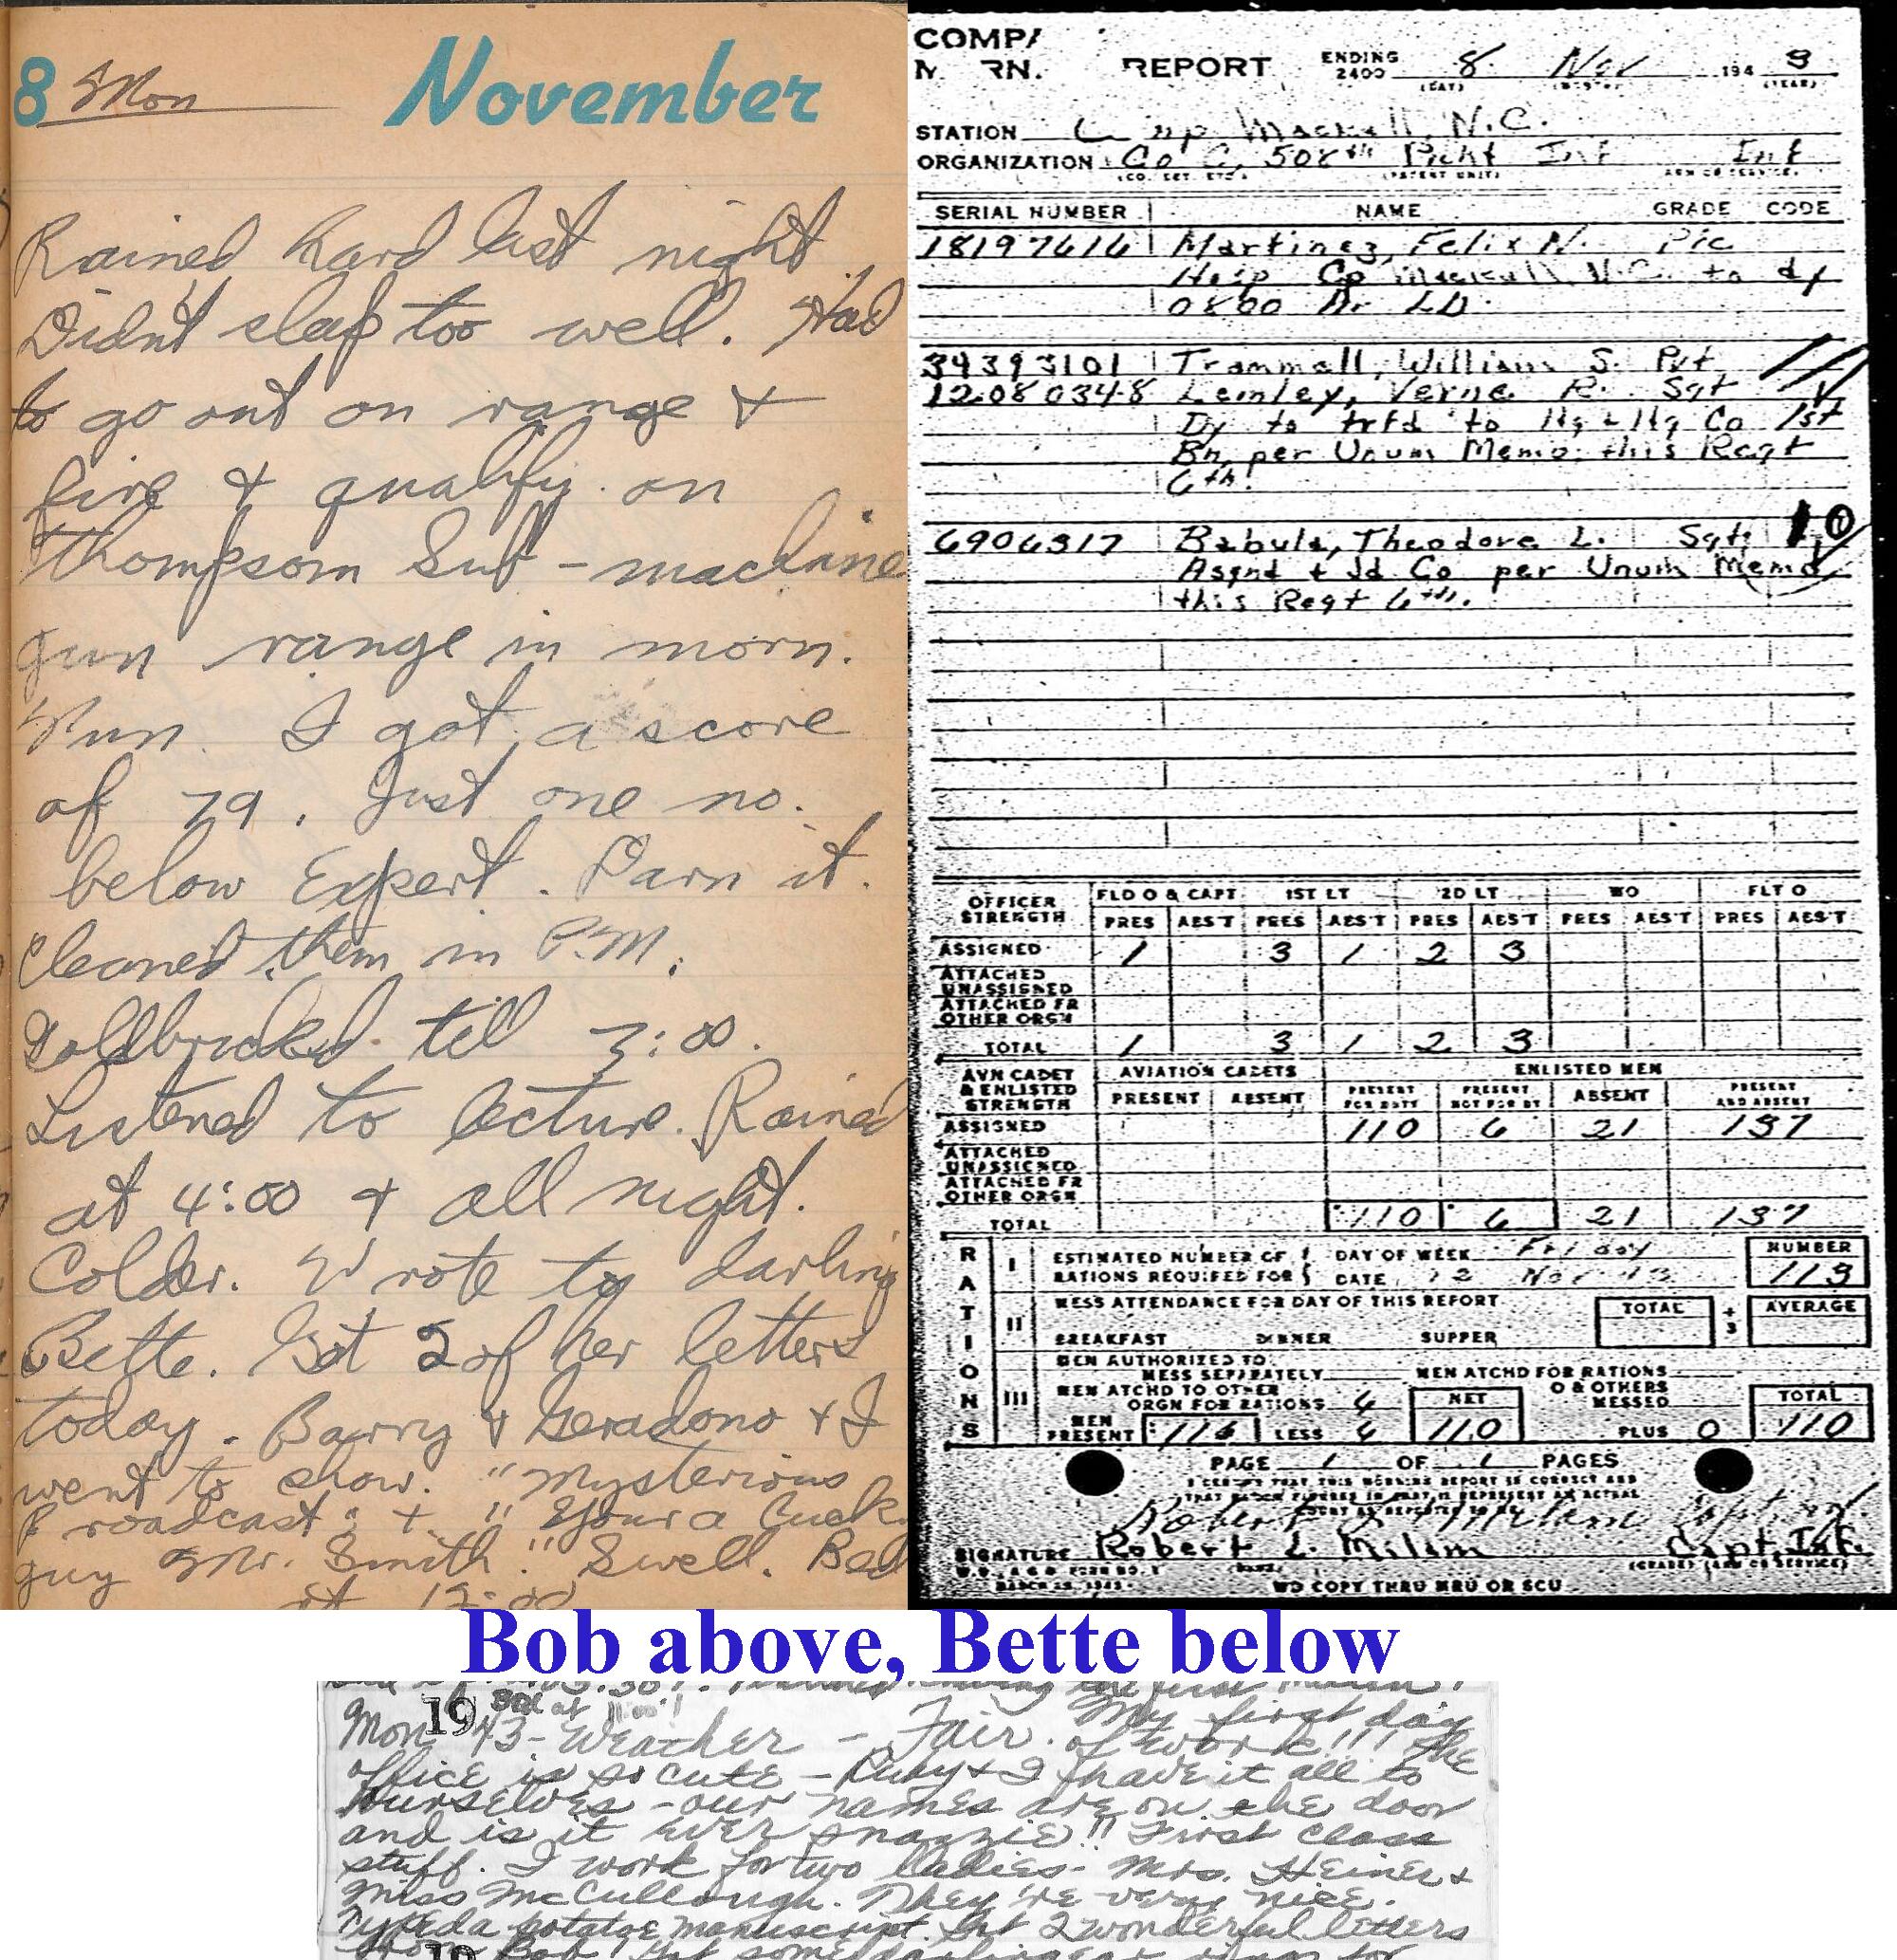 8 Mon November
Rained hard last night
Didn't slep too well. Had
to go out on range +
fire + qualify on
Thompsom Sub-machine
gun range in morn.
Fun. I got a score
of 79. Just one no.
below Expert. Darn it.
Cleaned them in P.M.
Goldbricked till 3:00.
Listened to lecture. Rained
at 4:00 + all night.
Colder. Wrote to darling
Bette. Got 2 of her letters
today. Barry + Geradono + I
went to show. "Mysterious
Broadcast" + "Your a Luck
guy Mr. Smith." Swell. Bed
at 12:00
COMPA
M RN. REPORT ENDING 2400 8 Nov 1943
(DAY) (YEAR)
STATION Camp Mackall, N.C.
ORGANIZATION Co C, 508th Pcht Inf Inf
(PARENT UNIT) ARM OR SERVICE
SERIAL NUMBER NAME GRADE CODE
18197616 Martinez, Felix N. Pfc
Hosp Cp Mackall N.C. to dy
0800 Ar LD
34393101 Trammell, William S. Pvt
12080348 Lemley, Verne R. Sgt
Dy to trfd to Hq + Hq Co 1st
Bn per Unum Memo this Regt
6th.
6906317 Babula, Theodore L. Sgt 10
Asgnd + Jd Co per Unum Memo
this Regt 6th.
OFFICER STRENGTH FLD O & CAPT 1ST LT 2D LT WO FLT O
PRES ABS'T PRES ABS'T PRES ABS'T PRES ABS'T PRES ABS'T
ASSIGNED 1 3 1 2 3
ATTACHED UNASSIGNED
ATTACHED FR OTHER ORGN
TOTAL 1 3 1 2 3
AVN CADET & ENLISTED STRENGTH AVIATION CADETS ENLISTED MEN
PRESENT ABSENT PRESENT FOR DUTY PRESENT NOT FOR DY ABSENT PRESENT AND ABSENT
ASSIGNED 110 6 21 137
ATTACHED UNASSIGNED
ATTACHED FR OTHER ORGN
TOTAL 110 6 21 137
RATIONS
I ESTIMATED NUMBER OF RATIONS REQUIRED FOR DAY OF WEEK Friday DATE 12 Nov 43 NUMBER 113
II MESS ATTENDANCE FOR DAY OF THIS REPORT TOTAL ÷ 3 AVERAGE
BREAKFAST DINNER SUPPER
III MEN AUTHORIZED TO MESS SEPARATELY MEN ATCHD FOR RATIONS
MEN ATCHD TO OTHER ORGN FOR RATIONS 6 NET O & OTHERS MESSED TOTAL
MEN PRESENT 116 LESS 6 110 PLUS 0 110
PAGE 1 OF 1 PAGES
I CERTIFY THAT THIS MORNING REPORT IS CORRECT AND
Robert L. Milam Capt Inf
SIGNATURE Robert L. Milam Capt Inf.
(GRADE) (ARM OR SERVICE)
MARCH 23, 1943
WD COPY THRU MRU OR SCU
Bob above, Bette below
Bed at
Mon 1943 - Weather - Fair. My first day
of work!!! The
office is so cute - Ruby + I have it all to
ourselves - our names are on the door
and is it ever snazzie!! First class
stuff. I work for two ladies - Mrs. Heiner +
Miss McCullough. They're very nice.
Typed a potatoe manuscript. Got 2 wonderful letters
from Bob! Got some